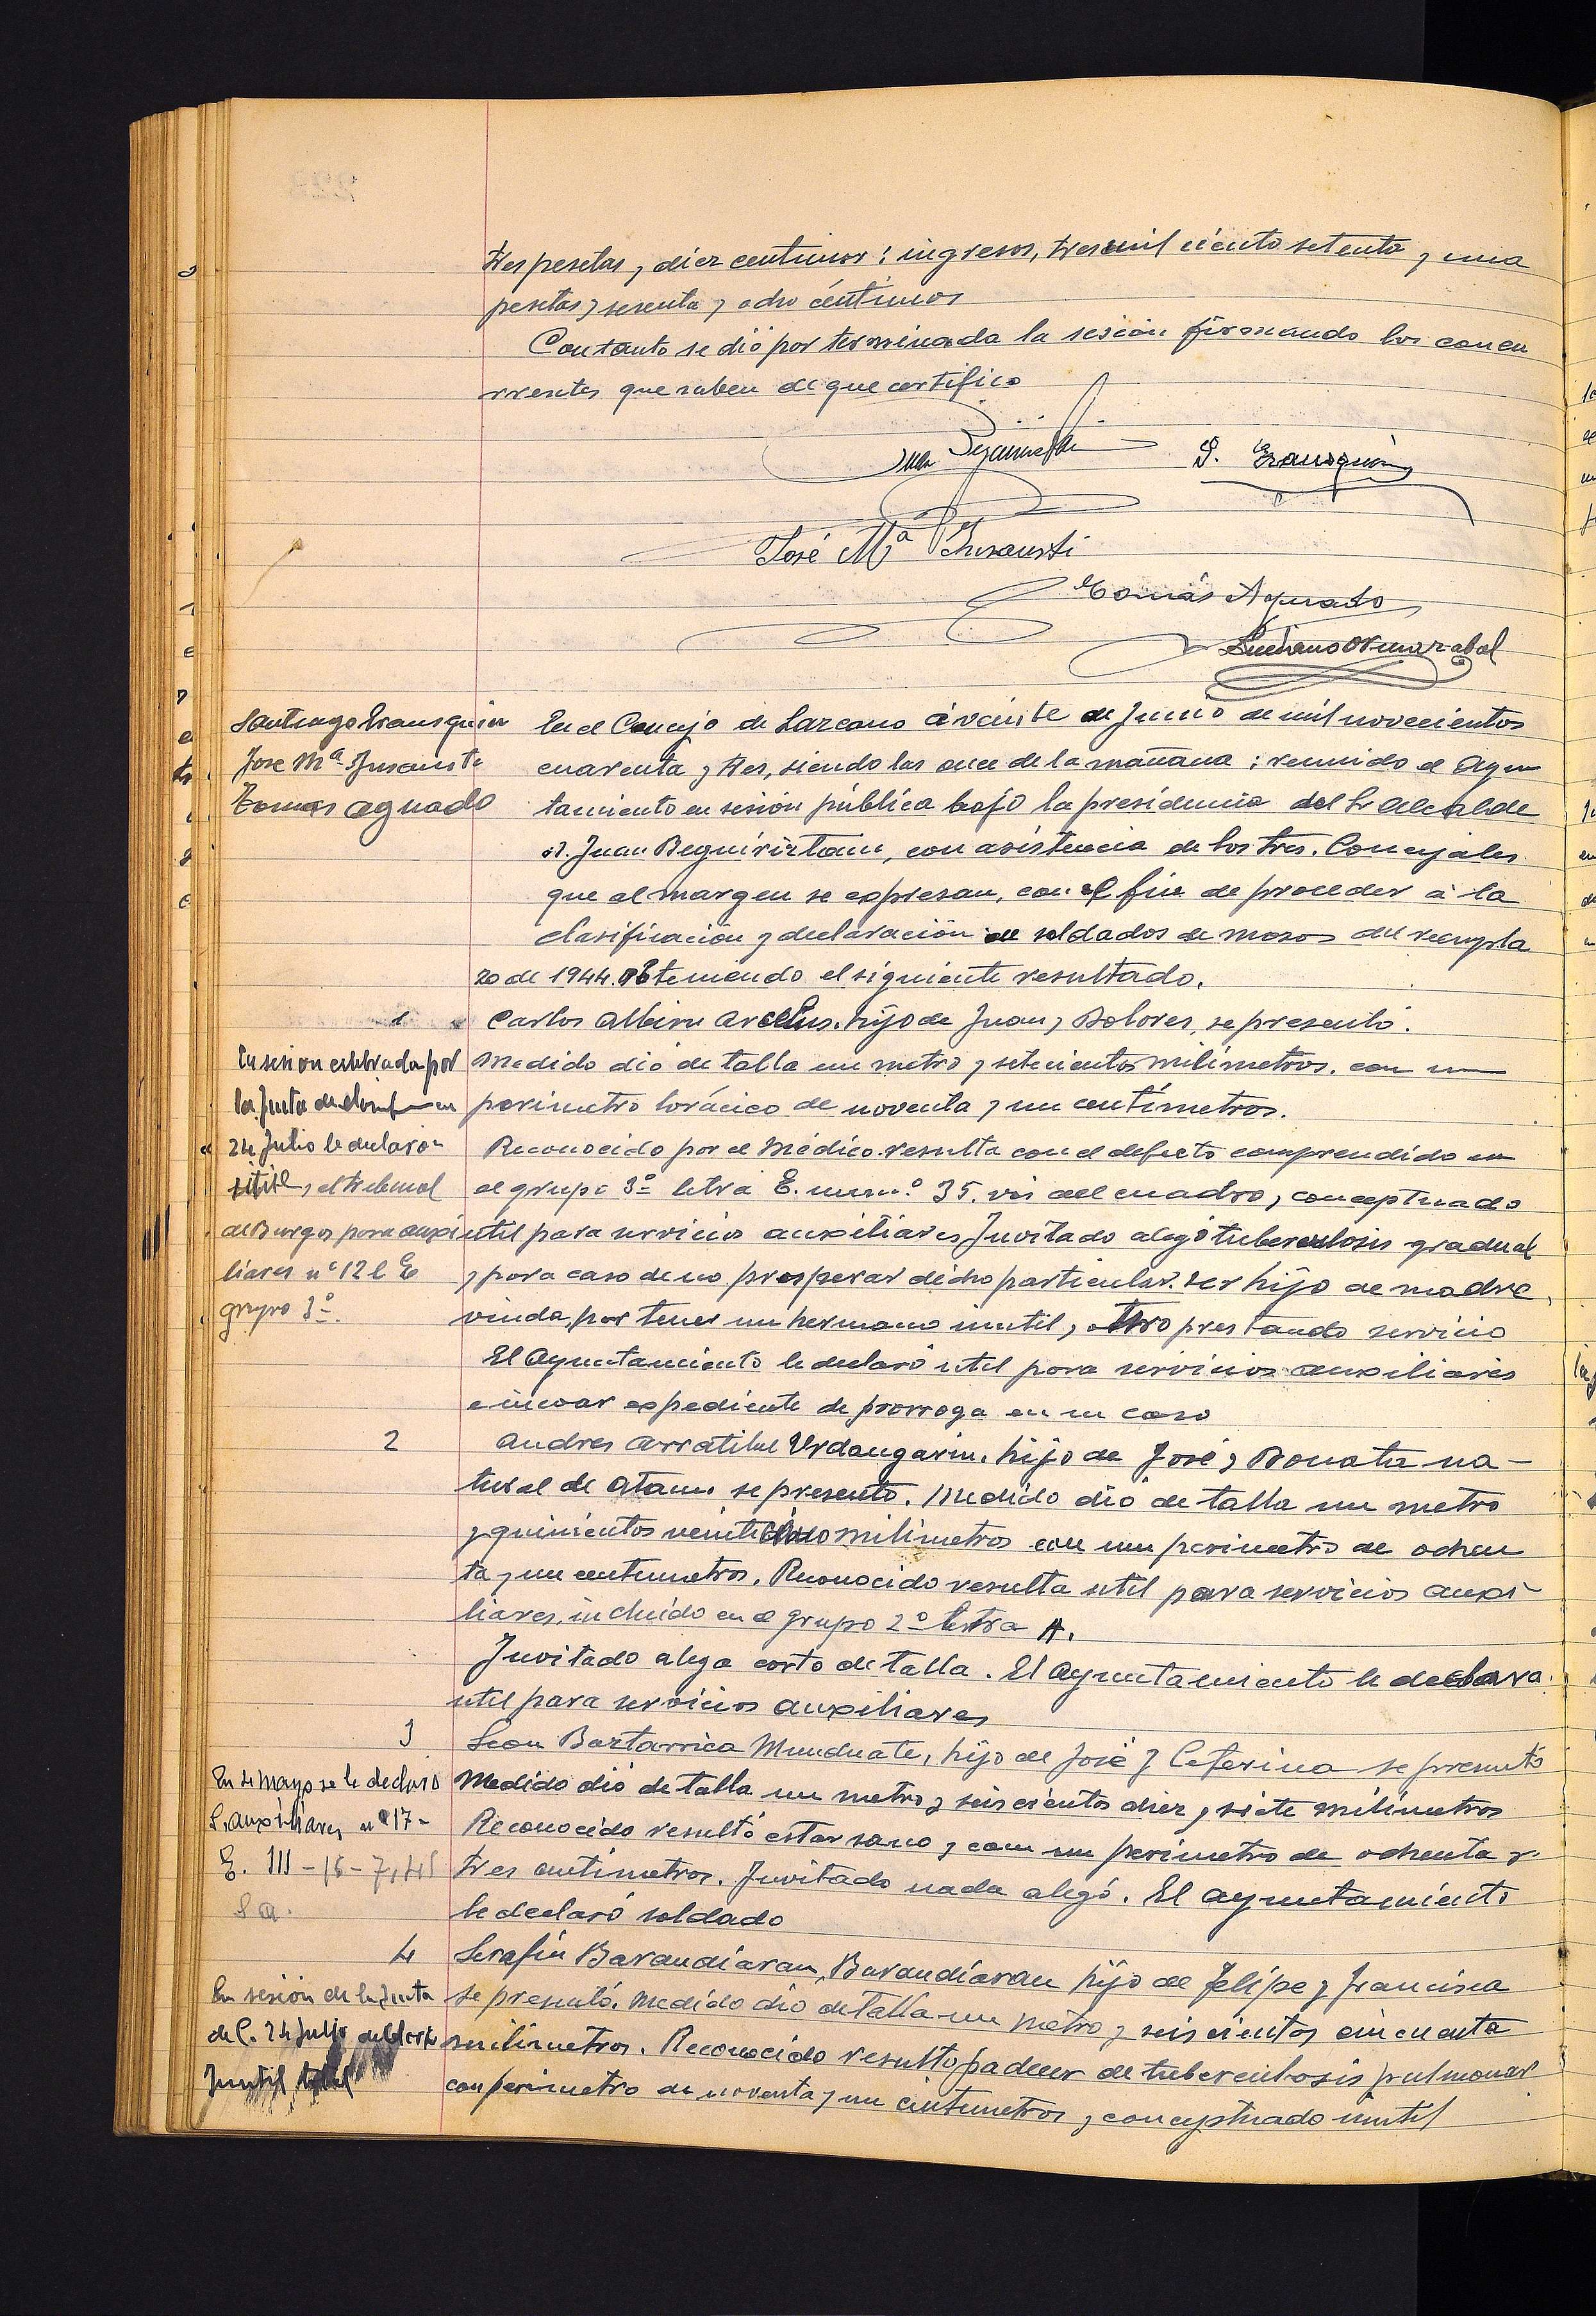 tres pesetas y diez centimos; ingresos, tres mil ciento setenta y una
pesetas y sesenta y ocho céntimos
Contanto se dió por terminada la sesión firmando los concu
rrentes que saben de que certifico
José Mª Insausti
Tomás Aguado
Santiago
José Mª Insausti
Tomas aguado
En el Concejo de Lazcano á veinte de Junio de mil novecientos
cuarenta y tres, siendo las once de la mañana; reunido el Ayun
tamiento en sesión pública bajo la presidencia del Sr Alcalde
D. Juan Beguiriztain, con asistencia de los Sres. Concejales
que al margen se expresan, con el fin de proceder á la
clasificación y declaración de soldados de mozos del reempla
zo de 1944. obteniendo el siguiente resultado.
1
Carlos Albisu Arcelus. hijo de Juan y Dolores, se presentó.
Medido dió de talla un metro y setecientos milimetros. con un
perimetro torácico de noventa y un centímetros.
En sesion celebrada por
la Junta de en
24 Julio le declaron
util, el tribunal
de Burgos para auxi
liares nº 12 l E
grupo 3º.
Reconocido por el Médico resulta con el defecto comprendido en
el grupo 3º letra E. num.º 35. del cuadro, conceptuado
util para servicios auxiliares Invitado alegó tuberculosis gradual
y para caso de no prosperar dicho particular. ser hijo de madre
viuda, por tener un hermano inutil, y otro prestando servicio
El Ayuntamiento le declaró util para servicios auxiliares
e incoar expediente de prorroga en su caso
2
Andres Arratibel Urdangarin. hijo de José y Donata na-
tural de Ataun se presentó. Medido dió de talla un metro
y quinientos milimetros con un perimetro de ochen
ta y un centimetros. Reconocido resulta util para servicios auxi-
liares, incluido en el grupo 2º letra A.
Invitado alega corto de talla. El Ayuntamiento le declara
util para servicios auxiliares
3
Leon Baztarrica Munduate, hijo de José y Ceferina se presentó
Medido dió de talla un metro y seiscientos diez y siete milímetros
Reconocido resultó estar sano y con un perimetro de ochenta y
tres centimetros. Invitado nada alegó. El ayuntamiento
le declaró soldado
En 4 mayo se le declaró
S. auxiliares nº 17-
E. III - 16 - 7, 45
S a.
4
Serafin Barandiaran Barandiaran hijo de Felipe y Francisca
se presentó. Medido dió de talla un metro y seiscientos cincuenta
milimetros. Reconocido resultó padecer de tuberculosis pulmonar
con perimetro de noventa y un centimetros y conceptuado inutil
En sesión de la Junta
de C. 24 Julio
Inutil total